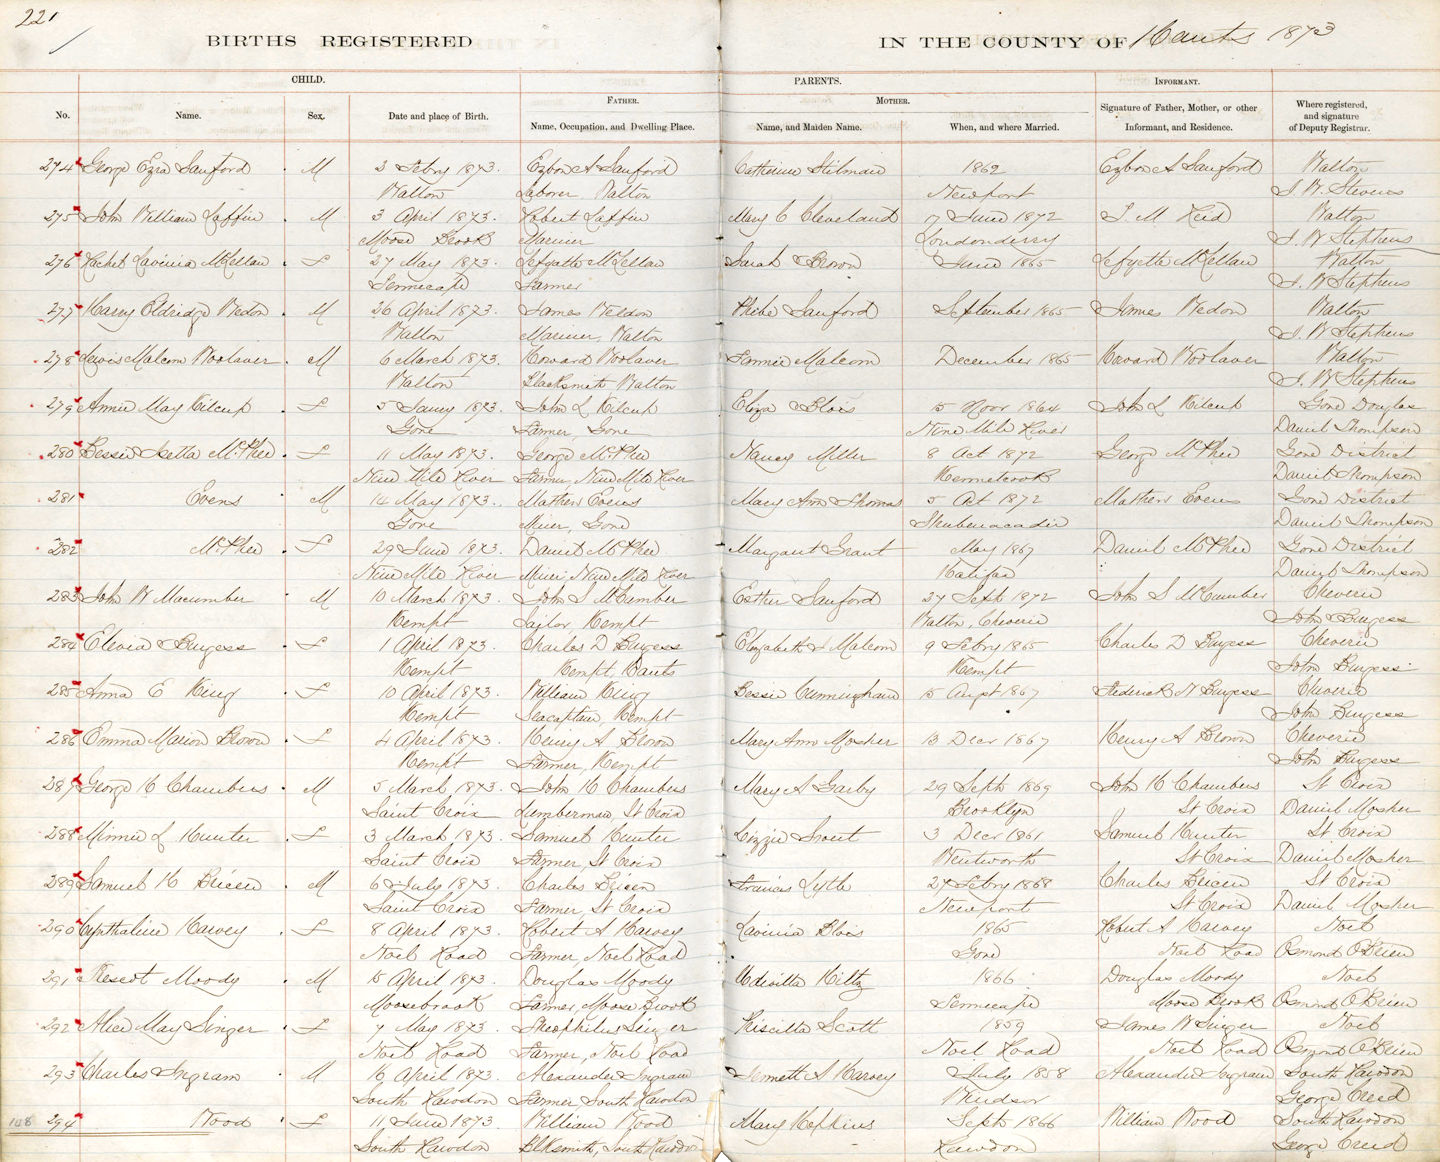 221
BIRTHS REGISTERED IN THE COUNTY OF Hants 1873
CHILD. PARENTS. INFORMANT.
FATHER. MOTHER.
No. Name. Sex. Date and place of Birth. Name, Occupation, and Dwelling Place. Name, and Maiden Name. When, and where Married. Signature of Father, Mother, or other Informant, and Residence. Where registered, and signature of Deputy Registrar.
274 George Ezra Sanford M 2 Febry 1873. Ezbon A Sanford Catherine Stilman 1862 Ezbon A Sanford Walton
Walton Laborer Walton Newport J. W. Stevens
275 John William Laffin M 3 April 1873. Robert Laffin Mary C Cleveland 17 June 1872 S. M. Reid Walton
Moose Brook Mariner Londonderry J. W Stephens
276 Rachel Lavinia McLellan F 27 May 1873. Lefyatte McLellan Sarah Brown June 1865 Lefyette McLellan Walton
Tennecape Farmer J. W Stephens
277 Harry Eldridge Wedon M 26 April 1873. James Weldon Phibe Sanford September 1865 James Wedon Walton
Walton Mariner, Walton J. W Stephens
278 Lewis Malcom Woolaver M 6 March 1873. Howard Woolaver Fannie Malcom December 1865 Howard Woolaver Walton
Walton Blacksmith Walton J. W Stephens
279 Annie May Kilcup F 5 Janry 1873. John L Kilcup Eliza Blois 15 Novr 1864 John L Kilcup Gore Douglas
Gore Farmer, Gore Nine Mile River Daniel Thompson
280 Bessie Isetta McPhee F 11 May 1873. George McPhee Nancy Miller 8 Oct 1872 George McPhee Gore District
Nine Mile River Farmer, Nine Mile River Kennetcook Daniel Thompson
281 Evens M 14 May 1873. Mathew Evens Mary Ann Thomas 5 Oct 1872 Mathew Evens Gore District
Gore Miner, Gore Shubenacadie Daniel Thompson
282 McPhee F 29 June 1873. Daniel McPhee Margaret Grant May 1867 Daniel McPhee Gore District
Nine Mile River Miner, Nine Mile River Halifax Daniel Thompson
283 John W Macumber M 10 March 1873. John S McCumber Esther Sanford 27 Sept 1872 John S McCumber Cheverie
Kempt Sailor Kempt Walton, Cheverie John Burgess
284 Elevia Burgess F 1 April 1873. Charles D Burgess Elizabeth Malcom 9 Febry 1865 Charles D Burgess Cheverie
Kempt Kempt, Hants Kempt John Burgess
285 Anna E King F 10 April 1873. William King Bessie Cunningham 15 Augst 1867 Frederick N Burgess Cheverie
Kempt Seacaptain, Kempt John Burgess
286 Emma Marion Brown F 4 April 1873. Henry A Brown Mary Ann Mosher 13 Decr 1867 Henry A Brown Cheverie
Kempt Farmer, Kempt John Burgess
287 George H Chambers M 5 March 1873. John H Chambers Mary A Garby 29 Septr 1869 John H Chambers St Croix
Saint Croix Lumberman, St Croix Brooklyn St Croix Daniel Mosher
288 Minnie L Hunter F 3 March 1873. Samuel Hunter Lizzie Trout 3 Decr 1861 Samuel Hunter St Croix
Saint Croix Farmer, St Croix Wentworth St Croix Daniel Mosher
289 Samuel H Bricen M 6 July 1873. Charles Bricen Francis Lytle 27 Febry 1868 Charles Bricen St Croix
Saint Croix Farmer, St Croix Newport St Croix Daniel Mosher
290 Cynthaline Harvey F 8 April 1873. Robert A Harvey Lavinia Blois 1865 Robert A Harvey Noel
Noel Road Farmer, Noel Road Gore Noel Road Osmond O'Brien
291 Rescot Moody M 15 April 1873. Douglas Moody Udavilla Hiltz 1866 Douglas Moody Noel
Moosebrook Farmer, Moose Brook Tennecape Moose Brook Osmond O'Brien
292 Alice May Singer F 7 May 1873. Theophilus Singer Priscilla Scott 1859 James W Singer Noel
Noel Road Farmer, Noel Road Noel Road Noel Road Osmond O'Brien
293 Charles Ingram M 16 April 1873. Alexander Ingram Jennett A Harvey July 1858 Alexander Ingram South Rawdon
South Rawdon Farmer South Rawdon Windsor George Creed
108 294 Wood F 11 June 1873. William Wood Mary Hopkins Septr 1866 William Wood South Rawdon
South Rawdon Blksmith, South Rawdon Rawdon George Creed